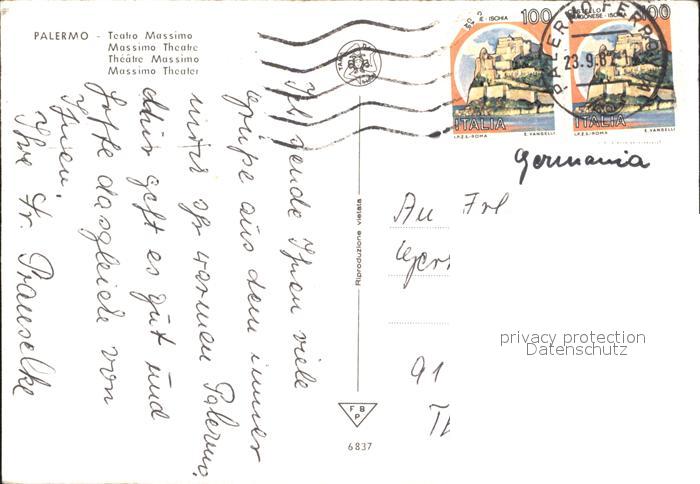 PALERMO - Teatro Massimo
Massimo Theatre
Théâtre Massimo
Massimo Theater
Ich sende Ihnen viele
Grüße aus dem immer
noch so warmen Palermo.
Mir geht es gut und
hoffe dasgleiche von
Ihnen.
Ihre Fr.
Riproduzione vietata
F B
P
6837
100
CASTELLO
ARAGONESE - ISCHIA
ITALIA
I.P.Z.S. - ROMA
E. VANGELLI
100
CASTELLO
ARAGONESE - ISCHIA
ITALIA
I.P.Z.S. - ROMA
E. VANGELLI
PALERMO FERROV
23.9.8
Germania
An Frl
Ger
91
privacy protection
Datenschutz